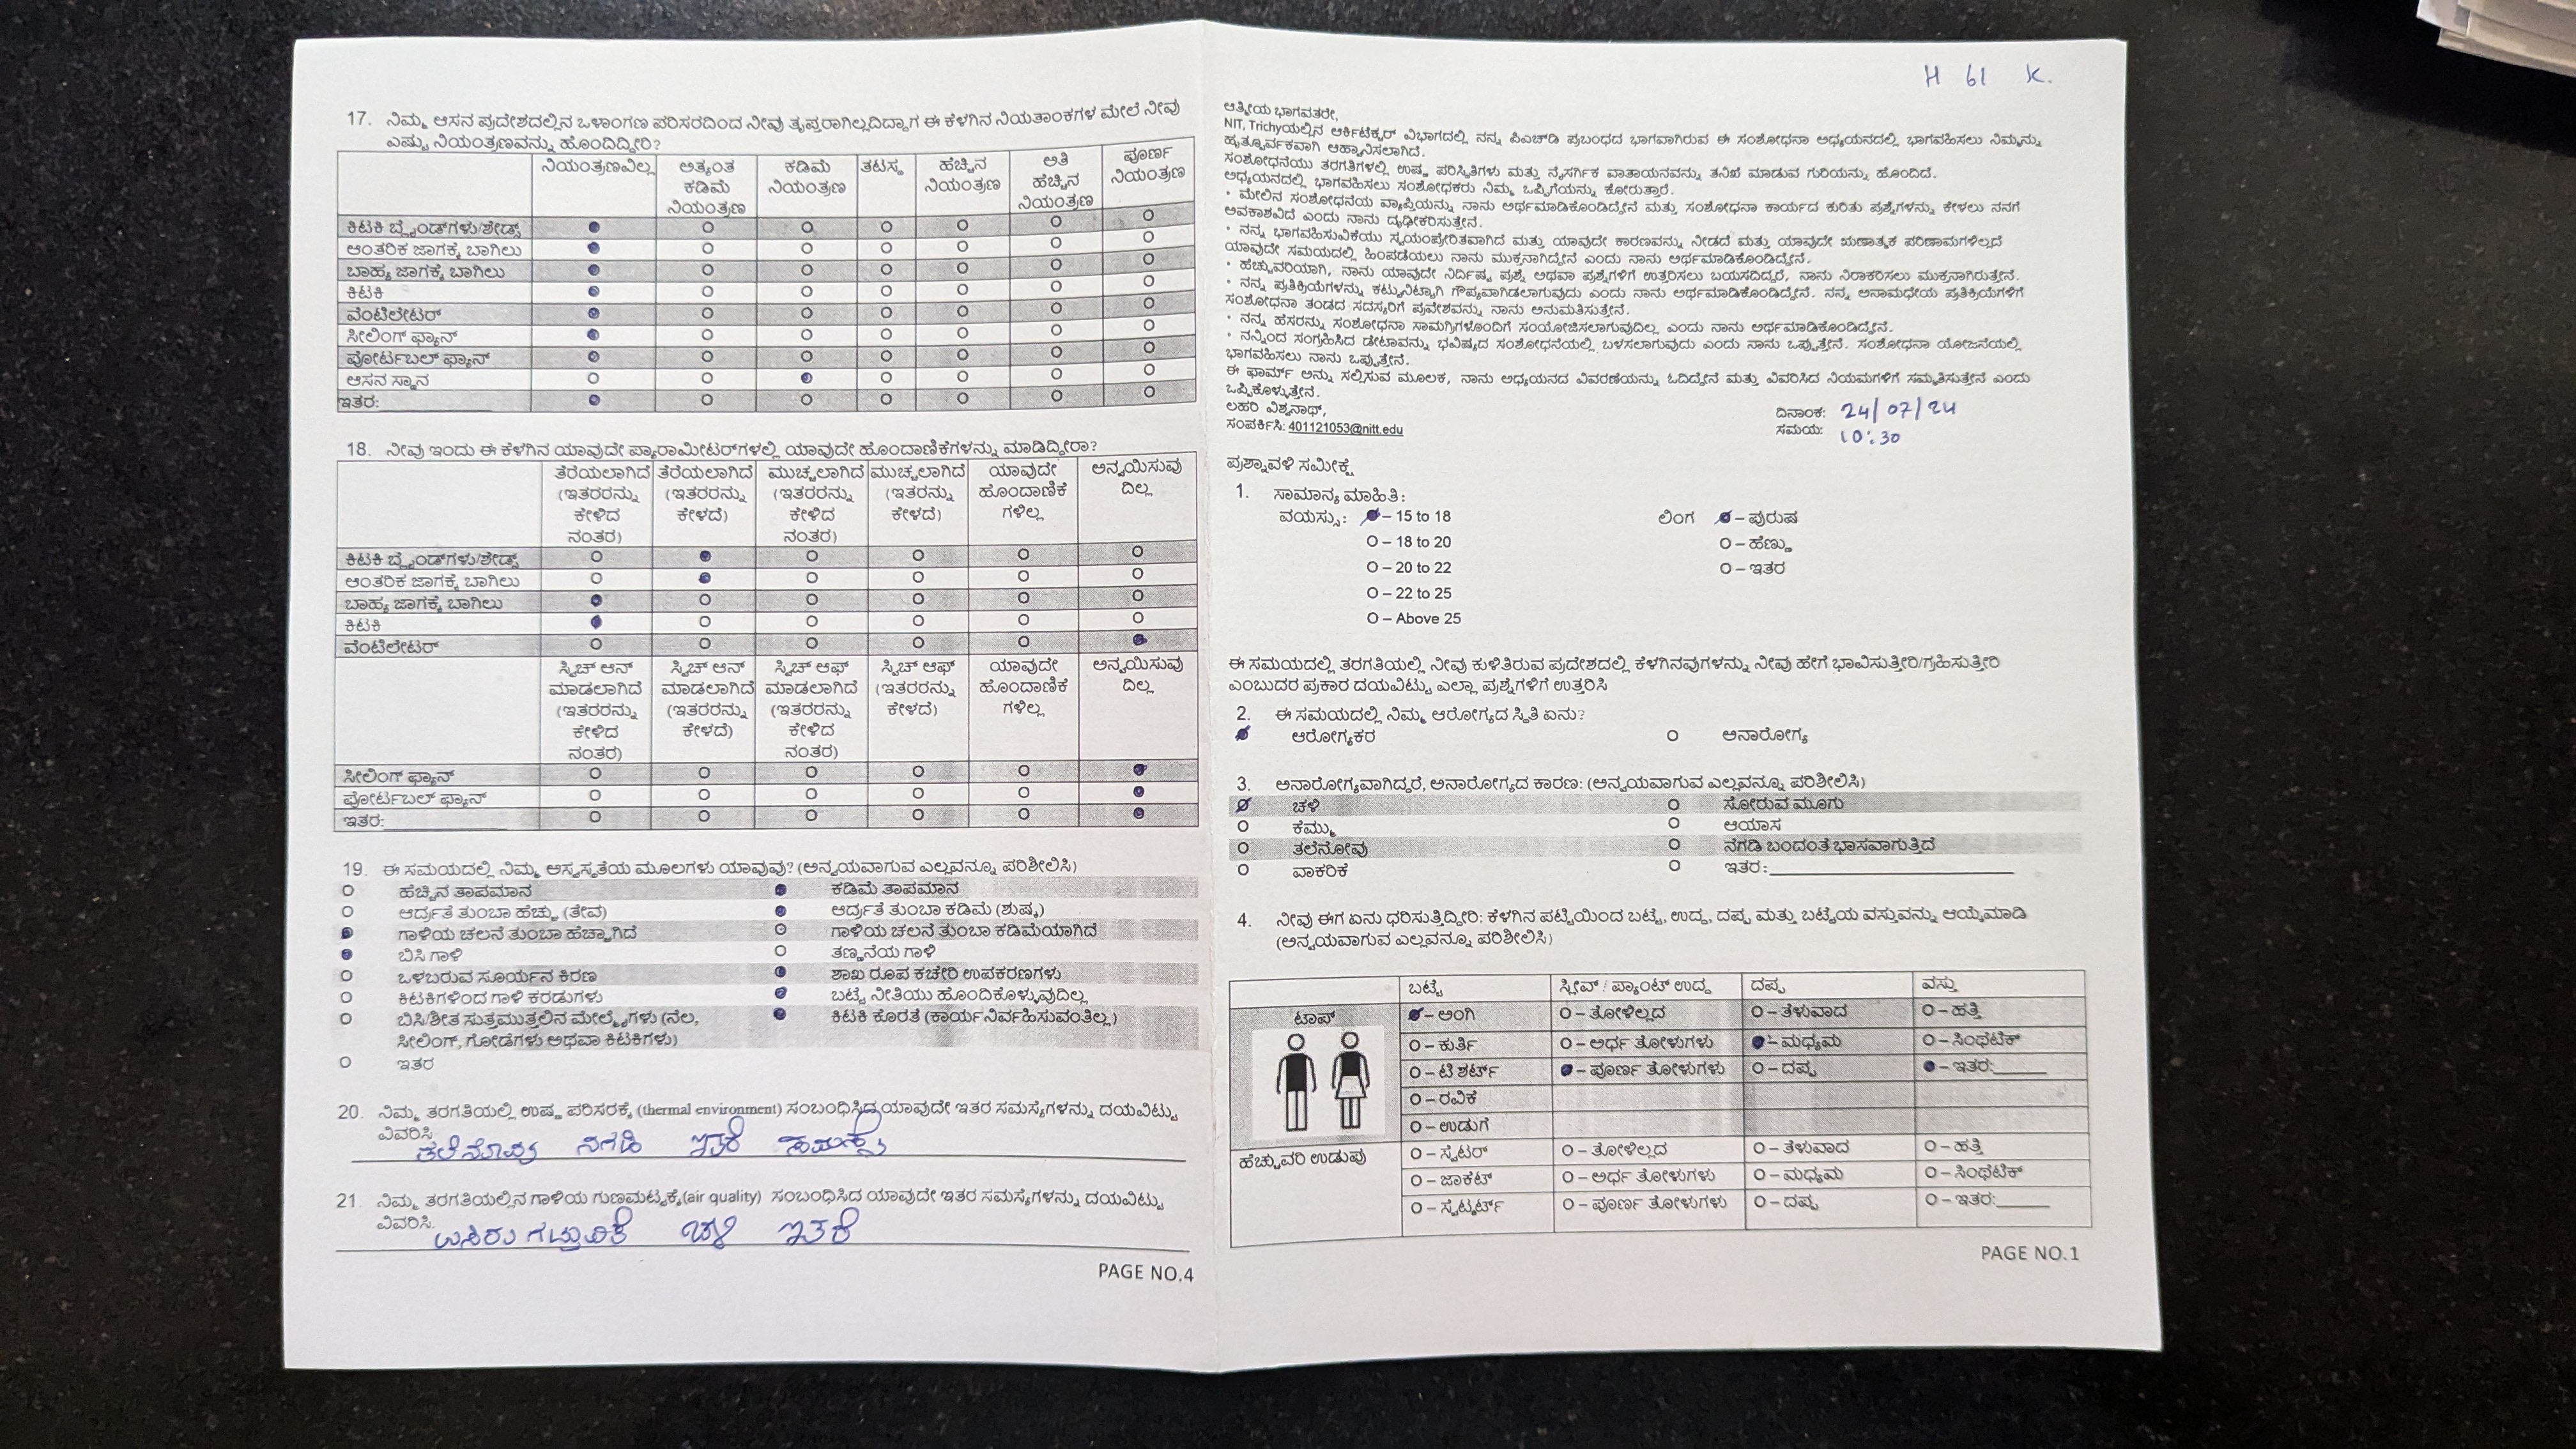 17. ನಿಮ್ಮ ಆಸನ ಪ್ರದೇಶದಲ್ಲಿನ ಒಳಾಂಗಣ ಪರಿಸರದಿಂದ ನೀವು ತೃಪ್ತರಾಗಿಲ್ಲದಿದ್ದಾಗ ಈ ಕೆಳಗಿನ ನಿಯತಾಂಕಗಳ ಮೇಲೆ ನೀವು
ಎಷ್ಟು ನಿಯಂತ್ರಣವನ್ನು ಹೊಂದಿದ್ದೀರಿ?
ನಿಯಂತ್ರಣವಿಲ್ಲ ಅತ್ಯಂತ ಕಡಿಮೆ ನಿಯಂತ್ರಣ ಕಡಿಮೆ ನಿಯಂತ್ರಣ ತಟಸ್ಥ ಹೆಚ್ಚಿನ ನಿಯಂತ್ರಣ ಅತಿ ಹೆಚ್ಚಿನ ನಿಯಂತ್ರಣ ಪೂರ್ಣ ನಿಯಂತ್ರಣ
ಕಿಟಕಿ ಬ್ಲೈಂಡ್‌ಗಳು/ಶೇಡ್ಸ್
ಆಂತರಿಕ ಜಾಗಕ್ಕೆ ಬಾಗಿಲು
ಬಾಹ್ಯ ಜಾಗಕ್ಕೆ ಬಾಗಿಲು
ಕಿಟಕಿ
ವೆಂಟಿಲೇಟರ್
ಸೀಲಿಂಗ್ ಫ್ಯಾನ್
ಪೋರ್ಟಬಲ್ ಫ್ಯಾನ್
ಆಸನ ಸ್ಥಾನ
ಇತರ:
18. ನೀವು ಇಂದು ಈ ಕೆಳಗಿನ ಯಾವುದೇ ಪ್ಯಾರಾಮೀಟರ್‌ಗಳಲ್ಲಿ ಯಾವುದೇ ಹೊಂದಾಣಿಕೆಗಳನ್ನು ಮಾಡಿದ್ದೀರಾ?
ತೆರೆಯಲಾಗಿದೆ (ಇತರರನ್ನು ಕೇಳಿದ ನಂತರ) ತೆರೆಯಲಾಗಿದೆ (ಇತರರನ್ನು ಕೇಳದೆ) ಮುಚ್ಚಲಾಗಿದೆ (ಇತರರನ್ನು ಕೇಳಿದ ನಂತರ) ಮುಚ್ಚಲಾಗಿದೆ (ಇತರನ್ನು ಕೇಳದೆ) ಯಾವುದೇ ಹೊಂದಾಣಿಕೆ ಗಳಿಲ್ಲ ಅನ್ವಯಿಸುವು ದಿಲ್ಲ
ಕಿಟಕಿ ಬ್ಲೈಂಡ್‌ಗಳು/ಶೇಡ್ಸ್
ಆಂತರಿಕ ಜಾಗಕ್ಕೆ ಬಾಗಿಲು
ಬಾಹ್ಯ ಜಾಗಕ್ಕೆ ಬಾಗಿಲು
ಕಿಟಕಿ
ವೆಂಟಿಲೇಟರ್
ಸ್ವಿಚ್ ಆನ್ ಮಾಡಲಾಗಿದೆ (ಇತರರನ್ನು ಕೇಳಿದ ನಂತರ) ಸ್ವಿಚ್ ಆನ್ ಮಾಡಲಾಗಿದೆ (ಇತರರನ್ನು ಕೇಳದೆ) ಸ್ವಿಚ್ ಆಫ್ ಮಾಡಲಾಗಿದೆ (ಇತರರನ್ನು ಕೇಳಿದ ನಂತರ) ಸ್ವಿಚ್ ಆಫ್ (ಇತರರನ್ನು ಕೇಳದೆ) ಯಾವುದೇ ಹೊಂದಾಣಿಕೆ ಗಳಿಲ್ಲ ಅನ್ವಯಿಸುವು ದಿಲ್ಲ
ಸೀಲಿಂಗ್ ಫ್ಯಾನ್
ಪೋರ್ಟಬಲ್ ಫ್ಯಾನ್
ಇತರ:
19. ಈ ಸಮಯದಲ್ಲಿ ನಿಮ್ಮ ಅಸ್ವಸ್ಥತೆಯ ಮೂಲಗಳು ಯಾವುವು? (ಅನ್ವಯವಾಗುವ ಎಲ್ಲವನ್ನೂ ಪರಿಶೀಲಿಸಿ)
ಹೆಚ್ಚಿನ ತಾಪಮಾನ ಕಡಿಮೆ ತಾಪಮಾನ
ಆರ್ದ್ರತೆ ತುಂಬಾ ಹೆಚ್ಚು (ತೇವ) ಆರ್ದ್ರತೆ ತುಂಬಾ ಕಡಿಮೆ (ಶುಷ್ಕ)
ಗಾಳಿಯ ಚಲನೆ ತುಂಬಾ ಹೆಚ್ಚಾಗಿದೆ ಗಾಳಿಯ ಚಲನೆ ತುಂಬಾ ಕಡಿಮೆಯಾಗಿದೆ
ಬಿಸಿ ಗಾಳಿ ತಣ್ಣನೆಯ ಗಾಳಿ
ಒಳಬರುವ ಸೂರ್ಯನ ಕಿರಣ ಶಾಖ ರೂಪ ಕಚೇರಿ ಉಪಕರಣಗಳು
ಕಿಟಕಿಗಳಿಂದ ಗಾಳಿ ಕರಡುಗಳು ಬಟ್ಟೆ ನೀತಿಯು ಹೊಂದಿಕೊಳ್ಳುವುದಿಲ್ಲ
ಬಿಸಿ/ಶೀತ ಸುತ್ತಮುತ್ತಲಿನ ಮೇಲ್ಮೈಗಳು (ನೆಲ, ಕಿಟಕಿ ಕೊರತೆ (ಕಾರ್ಯನಿರ್ವಹಿಸುವಂತಿಲ್ಲ)
ಸೀಲಿಂಗ್, ಗೋಡೆಗಳು ಅಥವಾ ಕಿಟಕಿಗಳು)
ಇತರ
20. ನಿಮ್ಮ ತರಗತಿಯಲ್ಲಿ ಉಷ್ಣ ಪರಿಸರಕ್ಕೆ (thermal environment) ಸಂಬಂಧಿಸಿದ ಯಾವುದೇ ಇತರ ಸಮಸ್ಯೆಗಳನ್ನು ದಯವಿಟ್ಟು
ವಿವರಿಸಿ.
ತಲೆನೋವು ನಿಗಡಿ
21. ನಿಮ್ಮ ತರಗತಿಯಲ್ಲಿನ ಗಾಳಿಯ ಗುಣಮಟ್ಟಕ್ಕೆ(air quality) ಸಂಬಂಧಿಸಿದ ಯಾವುದೇ ಇತರ ಸಮಸ್ಯೆಗಳನ್ನು ದಯವಿಟ್ಟು
ವಿವರಿಸಿ.
ಉಸಿರುಗಟ್ಟುವಿಕೆ ಚಳಿ
PAGE NO.4
H 61 K.
ಆತ್ಮೀಯ ಭಾಗವತರೇ,
NIT, Trichyಯಲ್ಲಿನ ಆರ್ಕಿಟೆಕ್ಚರ್ ವಿಭಾಗದಲ್ಲಿ ನನ್ನ ಪಿಎಚ್‌ಡಿ ಪ್ರಬಂಧದ ಭಾಗವಾಗಿರುವ ಈ ಸಂಶೋಧನಾ ಅಧ್ಯಯನದಲ್ಲಿ ಭಾಗವಹಿಸಲು ನಿಮ್ಮನ್ನು
ಹೃತ್ಪೂರ್ವಕವಾಗಿ ಆಹ್ವಾನಿಸಲಾಗಿದೆ.
ಸಂಶೋಧನೆಯು ತರಗತಿಗಳಲ್ಲಿ ಉಷ್ಣ ಪರಿಸ್ಥಿತಿಗಳು ಮತ್ತು ನೈಸರ್ಗಿಕ ವಾತಾಯನವನ್ನು ತನಿಖೆ ಮಾಡುವ ಗುರಿಯನ್ನು ಹೊಂದಿದೆ.
ಅಧ್ಯಯನದಲ್ಲಿ ಭಾಗವಹಿಸಲು ಸಂಶೋಧಕರು ನಿಮ್ಮ ಒಪ್ಪಿಗೆಯನ್ನು ಕೋರುತ್ತಾರೆ.
• ಮೇಲಿನ ಸಂಶೋಧನೆಯ ವ್ಯಾಪ್ತಿಯನ್ನು ನಾನು ಅರ್ಥಮಾಡಿಕೊಂಡಿದ್ದೇನೆ ಮತ್ತು ಸಂಶೋಧನಾ ಕಾರ್ಯದ ಕುರಿತು ಪ್ರಶ್ನೆಗಳನ್ನು ಕೇಳಲು ನನಗೆ
ಅವಕಾಶವಿದೆ ಎಂದು ನಾನು ದೃಢೀಕರಿಸುತ್ತೇನೆ.
• ನನ್ನ ಭಾಗವಹಿಸುವಿಕೆಯು ಸ್ವಯಂಪ್ರೇರಿತವಾಗಿದೆ ಮತ್ತು ಯಾವುದೇ ಕಾರಣವನ್ನು ನೀಡದೆ ಮತ್ತು ಯಾವುದೇ ಋಣಾತ್ಮಕ ಪರಿಣಾಮಗಳಿಲ್ಲದೆ
ಯಾವುದೇ ಸಮಯದಲ್ಲಿ ಹಿಂಪಡೆಯಲು ನಾನು ಮುಕ್ತನಾಗಿದ್ದೇನೆ ಎಂದು ನಾನು ಅರ್ಥಮಾಡಿಕೊಂಡಿದ್ದೇನೆ.
• ಹೆಚ್ಚುವರಿಯಾಗಿ, ನಾನು ಯಾವುದೇ ನಿರ್ದಿಷ್ಟ ಪ್ರಶ್ನೆ ಅಥವಾ ಪ್ರಶ್ನೆಗಳಿಗೆ ಉತ್ತರಿಸಲು ಬಯಸದಿದ್ದರೆ, ನಾನು ನಿರಾಕರಿಸಲು ಮುಕ್ತನಾಗಿರುತ್ತೇನೆ.
• ನನ್ನ ಪ್ರತಿಕ್ರಿಯೆಗಳನ್ನು ಕಟ್ಟುನಿಟ್ಟಾಗಿ ಗೌಪ್ಯವಾಗಿಡಲಾಗುವುದು ಎಂದು ನಾನು ಅರ್ಥಮಾಡಿಕೊಂಡಿದ್ದೇನೆ. ನನ್ನ ಅನಾಮಧೇಯ ಪ್ರತಿಕ್ರಿಯೆಗಳಿಗೆ
ಸಂಶೋಧನಾ ತಂಡದ ಸದಸ್ಯರಿಗೆ ಪ್ರವೇಶವನ್ನು ನಾನು ಅನುಮತಿಸುತ್ತೇನೆ.
• ನನ್ನ ಹೆಸರನ್ನು ಸಂಶೋಧನಾ ಸಾಮಗ್ರಿಗಳೊಂದಿಗೆ ಸಂಯೋಜಿಸಲಾಗುವುದಿಲ್ಲ ಎಂದು ನಾನು ಅರ್ಥಮಾಡಿಕೊಂಡಿದ್ದೇನೆ.
• ನನ್ನಿಂದ ಸಂಗ್ರಹಿಸಿದ ಡೇಟಾವನ್ನು ಭವಿಷ್ಯದ ಸಂಶೋಧನೆಯಲ್ಲಿ ಬಳಸಲಾಗುವುದು ಎಂದು ನಾನು ಒಪ್ಪುತ್ತೇನೆ. ಸಂಶೋಧನಾ ಯೋಜನೆಯಲ್ಲಿ
ಭಾಗವಹಿಸಲು ನಾನು ಒಪ್ಪುತ್ತೇನೆ.
ಈ ಫಾರ್ಮ್ ಅನ್ನು ಸಲ್ಲಿಸುವ ಮೂಲಕ, ನಾನು ಅಧ್ಯಯನದ ವಿವರಣೆಯನ್ನು ಓದಿದ್ದೇನೆ ಮತ್ತು ವಿವರಿಸಿದ ನಿಯಮಗಳಿಗೆ ಸಮ್ಮತಿಸುತ್ತೇನೆ ಎಂದು
ಒಪ್ಪಿಕೊಳ್ಳುತ್ತೇನೆ.
ಲಹರಿ ವಿಶ್ವನಾಥ್,
ಸಂಪರ್ಕಿಸಿ: 401121053@nitt.edu
ದಿನಾಂಕ: 24/07/24
ಸಮಯ: 10:30
ಪ್ರಶ್ನಾವಳಿ ಸಮೀಕ್ಷೆ
1. ಸಾಮಾನ್ಯ ಮಾಹಿತಿ:
ವಯಸ್ಸು: – 15 to 18 ಲಿಂಗ – ಪುರುಷ
O – 18 to 20 O – ಹೆಣ್ಣು
O – 20 to 22 O – ಇತರ
O – 22 to 25
O – Above 25
ಈ ಸಮಯದಲ್ಲಿ ತರಗತಿಯಲ್ಲಿ ನೀವು ಕುಳಿತಿರುವ ಪ್ರದೇಶದಲ್ಲಿ ಕೆಳಗಿನವುಗಳನ್ನು ನೀವು ಹೇಗೆ ಭಾವಿಸುತ್ತೀರಿ/ಗ್ರಹಿಸುತ್ತೀರಿ
ಎಂಬುದರ ಪ್ರಕಾರ ದಯವಿಟ್ಟು ಎಲ್ಲಾ ಪ್ರಶ್ನೆಗಳಿಗೆ ಉತ್ತರಿಸಿ
2. ಈ ಸಮಯದಲ್ಲಿ ನಿಮ್ಮ ಆರೋಗ್ಯದ ಸ್ಥಿತಿ ಏನು?
ಆರೋಗ್ಯಕರ O ಅನಾರೋಗ್ಯ
3. ಅನಾರೋಗ್ಯವಾಗಿದ್ದರೆ, ಅನಾರೋಗ್ಯದ ಕಾರಣ: (ಅನ್ವಯವಾಗುವ ಎಲ್ಲವನ್ನೂ ಪರಿಶೀಲಿಸಿ)
ಚಳಿ O ಸೋರುವ ಮೂಗು
O ಕೆಮ್ಮು O ಆಯಾಸ
O ತಲೆನೋವು O ನೆಗಡಿ ಬಂದಂತೆ ಭಾಸವಾಗುತ್ತಿದೆ
O ವಾಕರಿಕೆ O ಇತರ:
4. ನೀವು ಈಗ ಏನು ಧರಿಸುತ್ತಿದ್ದೀರಿ: ಕೆಳಗಿನ ಪಟ್ಟಿಯಿಂದ ಬಟ್ಟೆ, ಉದ್ದ, ದಪ್ಪ ಮತ್ತು ಬಟ್ಟೆಯ ವಸ್ತುವನ್ನು ಆಯ್ಕೆಮಾಡಿ
(ಅನ್ವಯವಾಗುವ ಎಲ್ಲವನ್ನೂ ಪರಿಶೀಲಿಸಿ)
ಬಟ್ಟೆ ಸ್ಲೀವ್ / ಪ್ಯಾಂಟ್ ಉದ್ದ ದಪ್ಪ ವಸ್ತು
ಟಾಪ್ – ಅಂಗಿ O – ತೋಳಿಲ್ಲದ O – ತೆಳುವಾದ O – ಹತ್ತಿ
O – ಕುರ್ತಿ O – ಅರ್ಧ ತೋಳುಗಳು – ಮಧ್ಯಮ O – ಸಿಂಥೆಟಿಕ್
O – ಟಿ ಶರ್ಟ್ – ಪೂರ್ಣ ತೋಳುಗಳು O – ದಪ್ಪ – ಇತರ:
O – ರವಿಕೆ
O – ಉಡುಗೆ
ಹೆಚ್ಚುವರಿ ಉಡುಪು O – ಸ್ವೆಟರ್ O – ತೋಳಿಲ್ಲದ O – ತೆಳುವಾದ O – ಹತ್ತಿ
O – ಜಾಕೆಟ್ O – ಅರ್ಧ ತೋಳುಗಳು O – ಮಧ್ಯಮ O – ಸಿಂಥೆಟಿಕ್
O – ಸ್ವೆಟ್ಶರ್ಟ್ O – ಪೂರ್ಣ ತೋಳುಗಳು O – ದಪ್ಪ O – ಇತರ:
PAGE NO.1